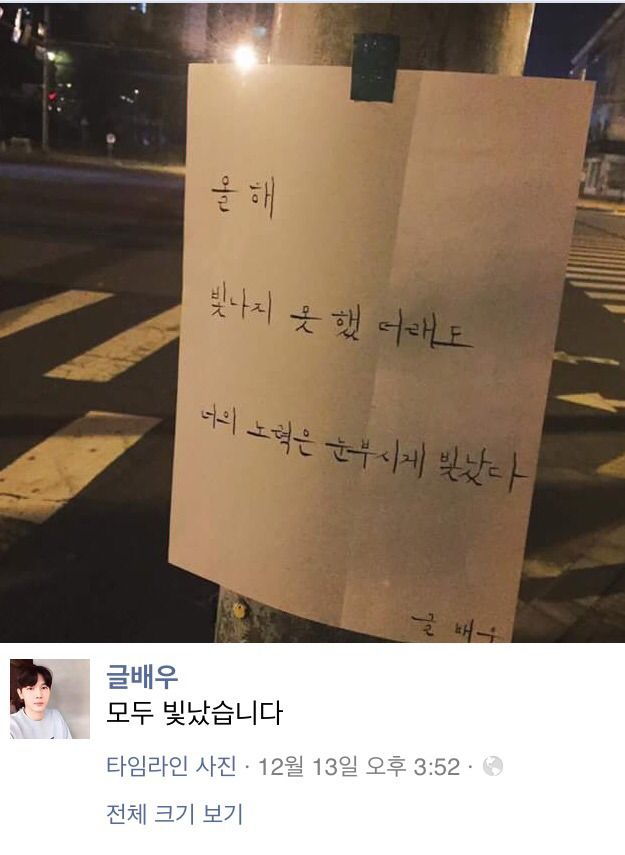 올해
빛나지 못 했더래도
너의 노력은 눈부시게 빛났다
글 배우
글배우
모두 빛났습니다
타임라인 사진 · 12월 13일 오후 3:52 ·
전체 크기 보기